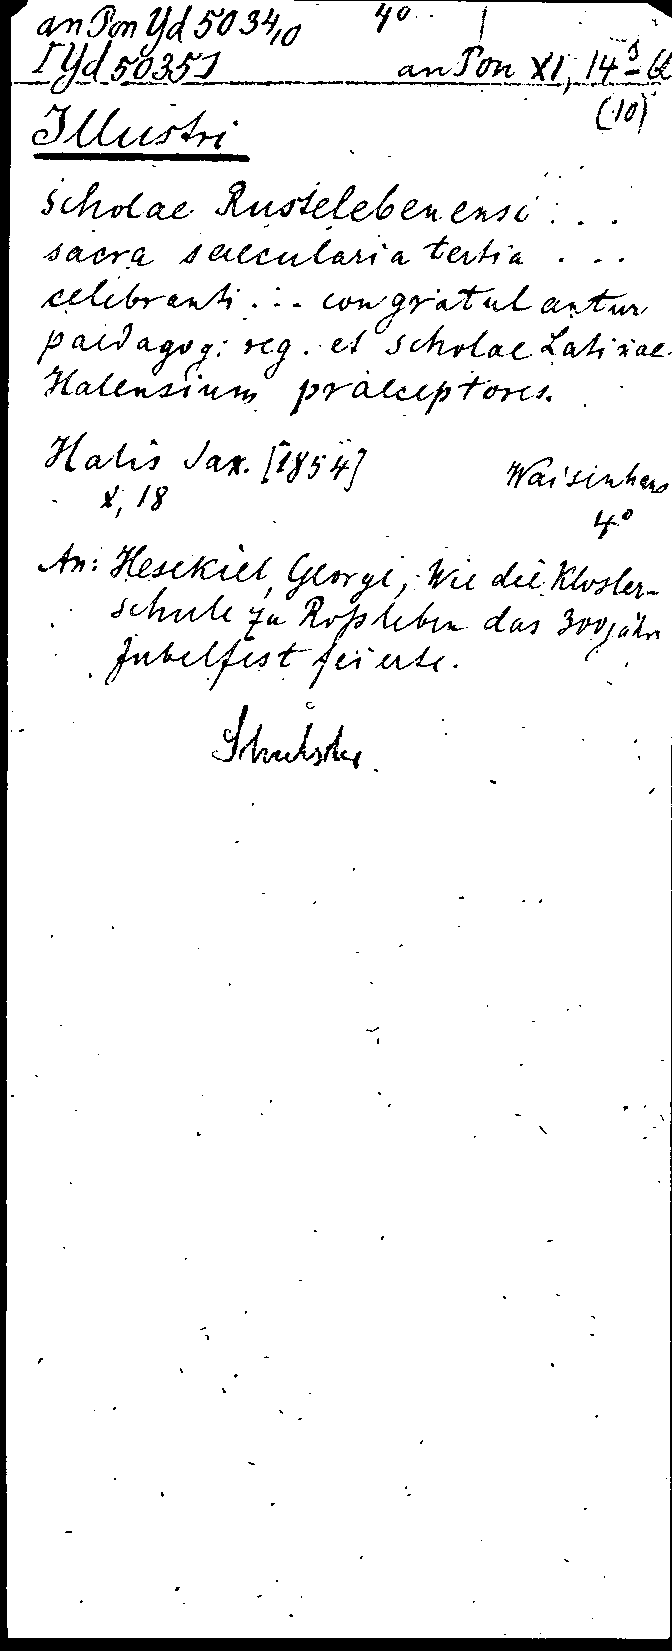 an Pon Yd 5034,10 4°
[Yd 5035]
an Pon XI, 14
(10)
Illustri
scholae Rustelebenensi . . .
sacra saecularia tertia . . .
celebranti . . . congratulantur
paedagog: reg. et scholae Latinae
Halensium praeceptores.
Halis Sax. [1854] Waisenhaus
X, 18 4°
An: Hesekiel, George, Wie die Kloster-
schule zu Roßleben das 300jähr
Jubelfest feierte.